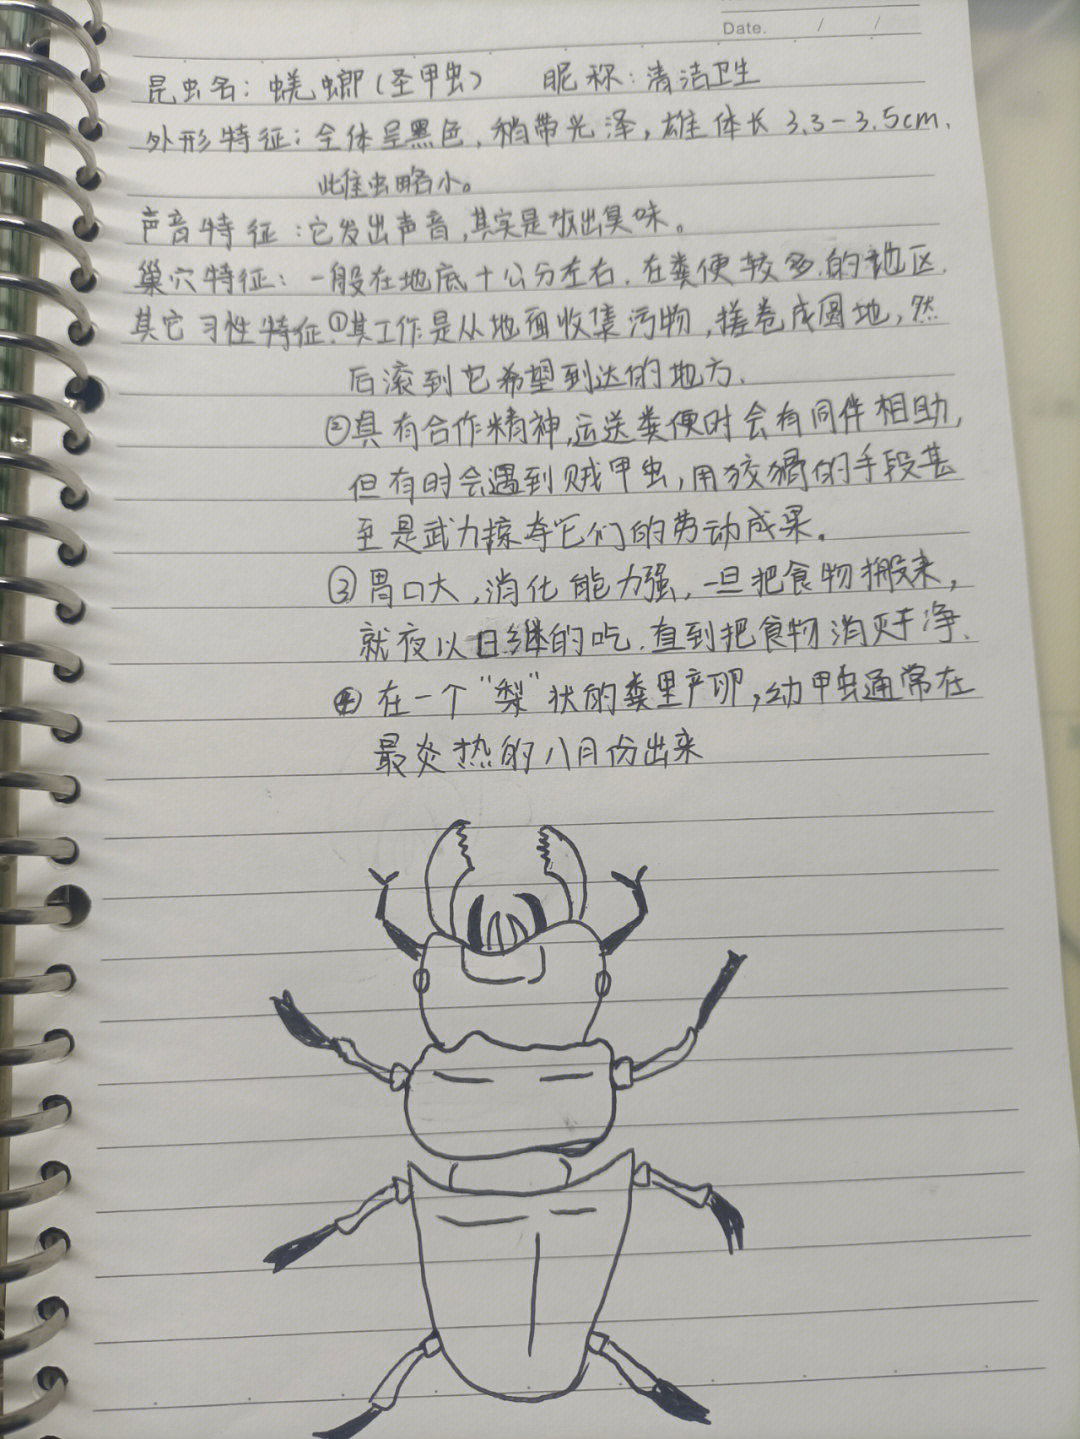 Date. / /
昆虫名：蜣螂（圣甲虫） 昵称：清洁卫生
外形特征：全体呈黑色，稍带光泽，雄体长 3.3-3.5cm，
此雄虫略小。
声音特征：它发出声音，其实是放出臭味。
巢穴特征：一般在地底十公分左右．在粪便较多．的地区．
其它习性特征．①其工作是从地面收集污物，搓卷成圆地，然
后滚到它希望到达的地方．
②具有合作精神，运送粪便时会有同伴相助，
但有时会遇到贼甲虫，用狡猾的手段甚
至是武力掠夺它们的劳动成果。
③胃口大，消化能力强，一旦把食物搬来，
就夜以日继的吃．直到把食物消灭干净．
④在一个“梨”状的粪里产卵，幼甲虫通常在
最炎热的八月份出来